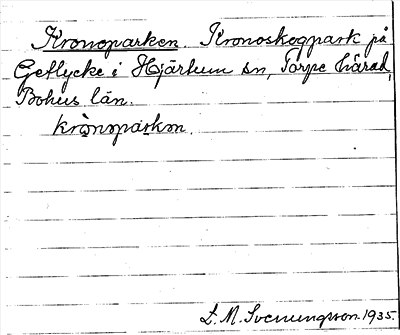 Kronoparken. Kronoskogpark på
Geflycke i Hjärtum sn, Torpe härad,
Bohus län.
krò̀nopàrkən.
S. M. Svenungsson. 1935.